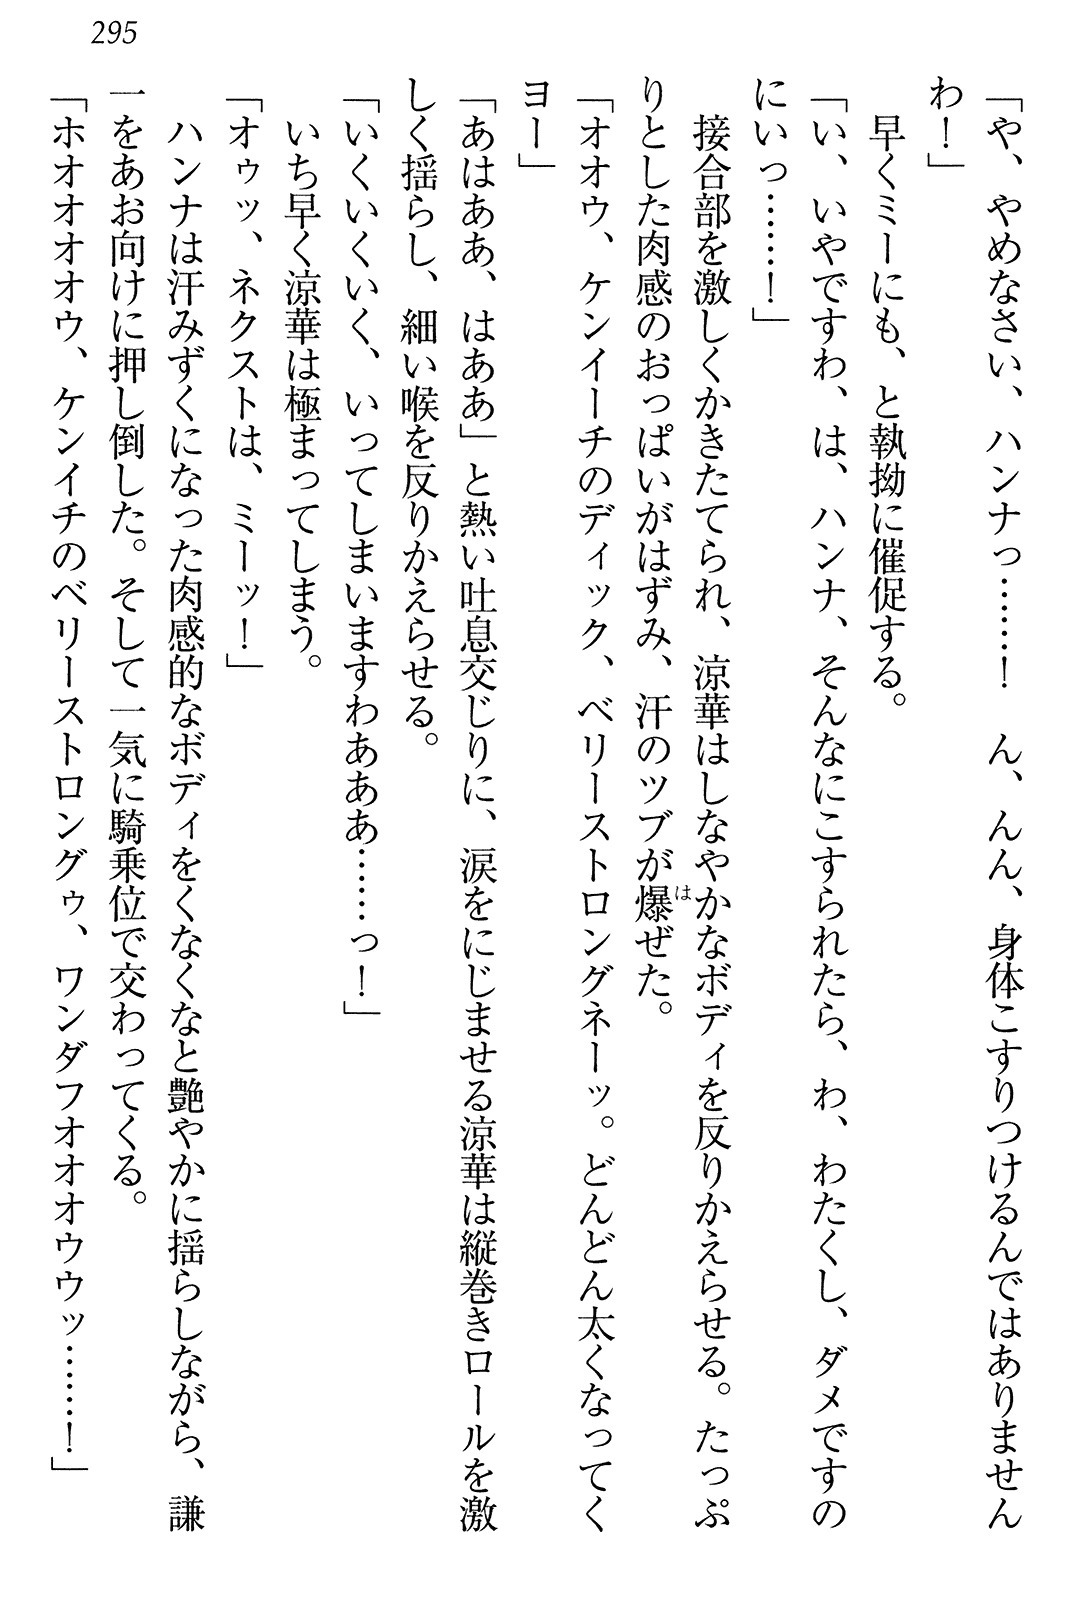 295
「や、やめなさい、ハンナっ……！　ん、んん、身体こすりつけるんではありません
わ！」
　早くミーにも、と執拗に催促する。
「い、いやですわ、は、ハンナ、そんなにこすられたら、わ、わたくし、ダメですの
にいっ……！」
　接合部を激しくかきたてられ、涼華はしなやかなボディを反りかえらせる。たっぷ
りとした肉感のおっぱいがはずみ、汗のツブが爆は ぜた。
「オオウ、ケンイーチのディック、ベリーストロングネーッ。どんどん太くなってく
ヨー」
「あはああ、はああ」と熱い吐息交じりに、涙をにじませる涼華は縦巻きロールを激
しく揺らし、細い喉を反りかえらせる。
「いくいくいく、いってしまいますわあああ……っ！」
　いち早く涼華は極まってしまう。
「オゥッ、ネクストは、ミーッ！」
　ハンナは汗みずくになった肉感的なボディをくなくなと艶やかに揺らしながら、謙
一をあお向けに押し倒した。そして一気に騎乗位で交わってくる。
「ホオオオオウ、ケンイチのベリーストロングゥ、ワンダフオオオウウッ……！」